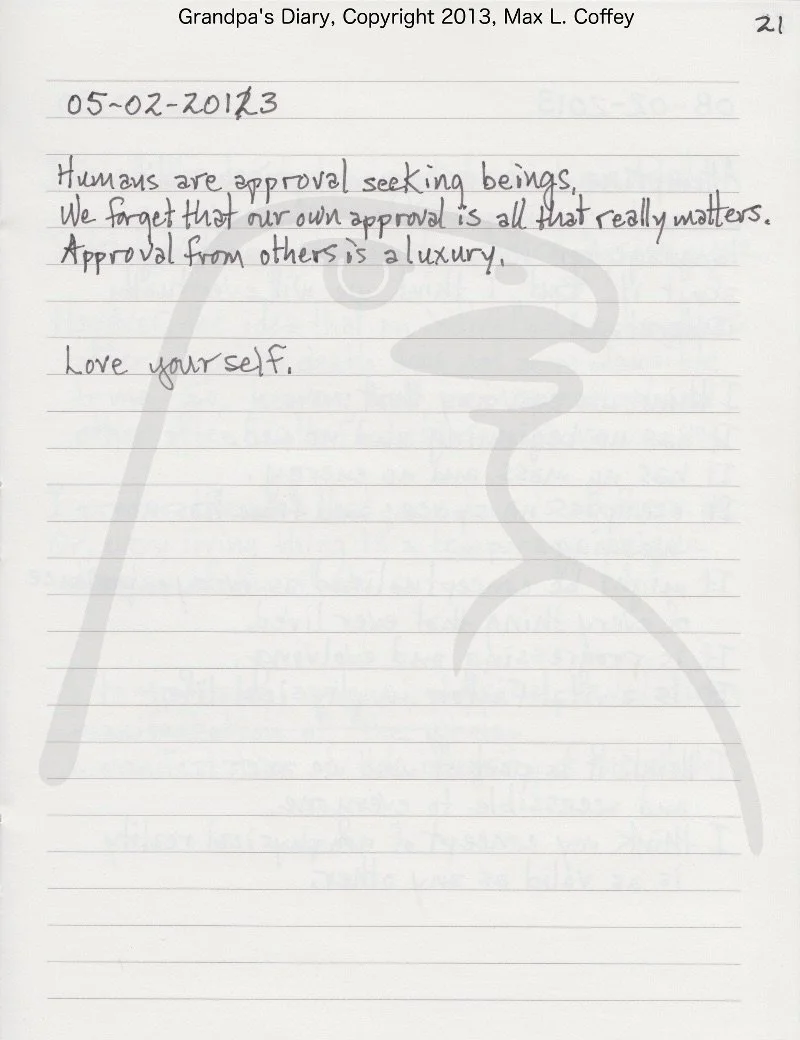 Grandpa's Diary, Copyright 2013, Max L. Coffey
21
05-02-2013
Humans are approval seeking beings,
We forget that our own approval is all that really matters.
Approval from others is a luxury.
Love yourself.